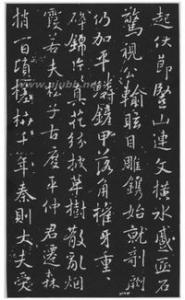 起伏節竪山連文橫水蹙匠石
驚視公輸眩目雕鐫始就剞劂
仍加平鱗鏟甲落角摧牙重〻
碎錦片〻真花紛披草樹散亂煙
霞若夫松子古度平仲君遷森
梢百頃槎枿千年秦則大夫受